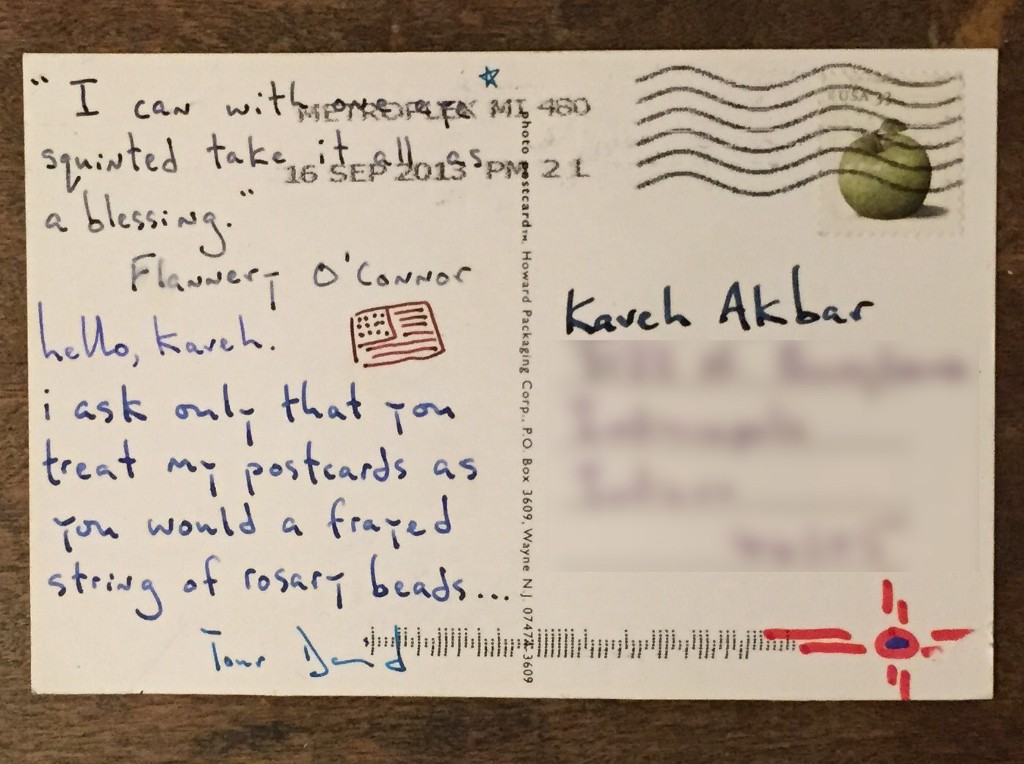 "I can with one eye
squinted take it all as
a blessing."
Flannery O'Connor
hello, Kaveh.
i ask only that you
treat my postcards as
you would a frayed
string of rosary beads...
Your David
METROPLEX MI 480
16 SEP 2013 PM 2 L
USA 33
photo postcard™, Howard Packaging Corp., P.O. Box 3609, Wayne N.J. 07474-3609
Kaveh Akbar